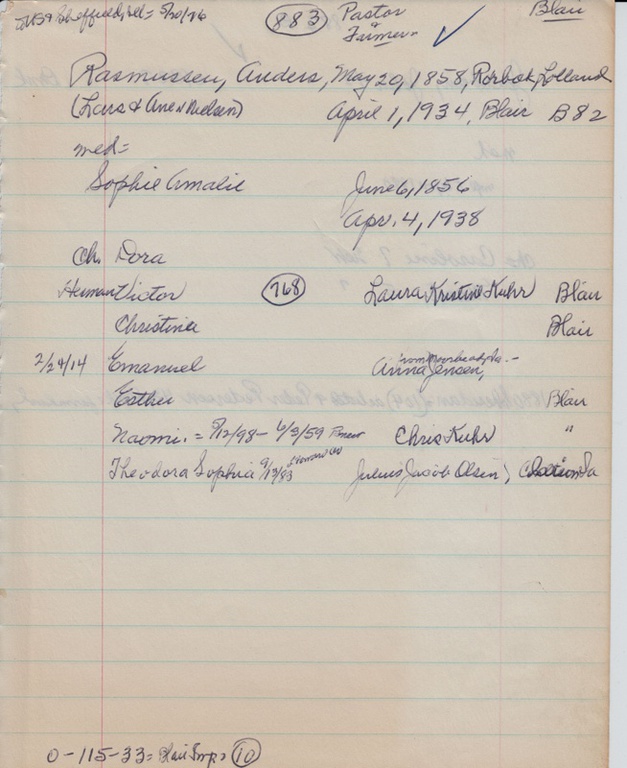 Sheffield, Ill= 5/20/86 883 Pastor Blair
& Farmer
Rasmussen, Anders, May 20, 1858, Rorbok, Lolland
(Lars & Ane Nielsen) April 1, 1934, Blair B82
med=
Sophie Amalie June 6, 1856
Apr. 4, 1938
Ch. Dora
Herman Victor 768 Laura Kristine Kuhr Blair
Christina Blair
from Moorhead, Ia. -
2/24/14 Emanuel Anna Jensen,
Esther Blair
Naomi. = 5/12/98 - 6/3/59 Chris Kuhr "
Theodora Sophia 9/13/83 Julius Jacob Olsen, Ia
0-115-33= Blair Imp. 10